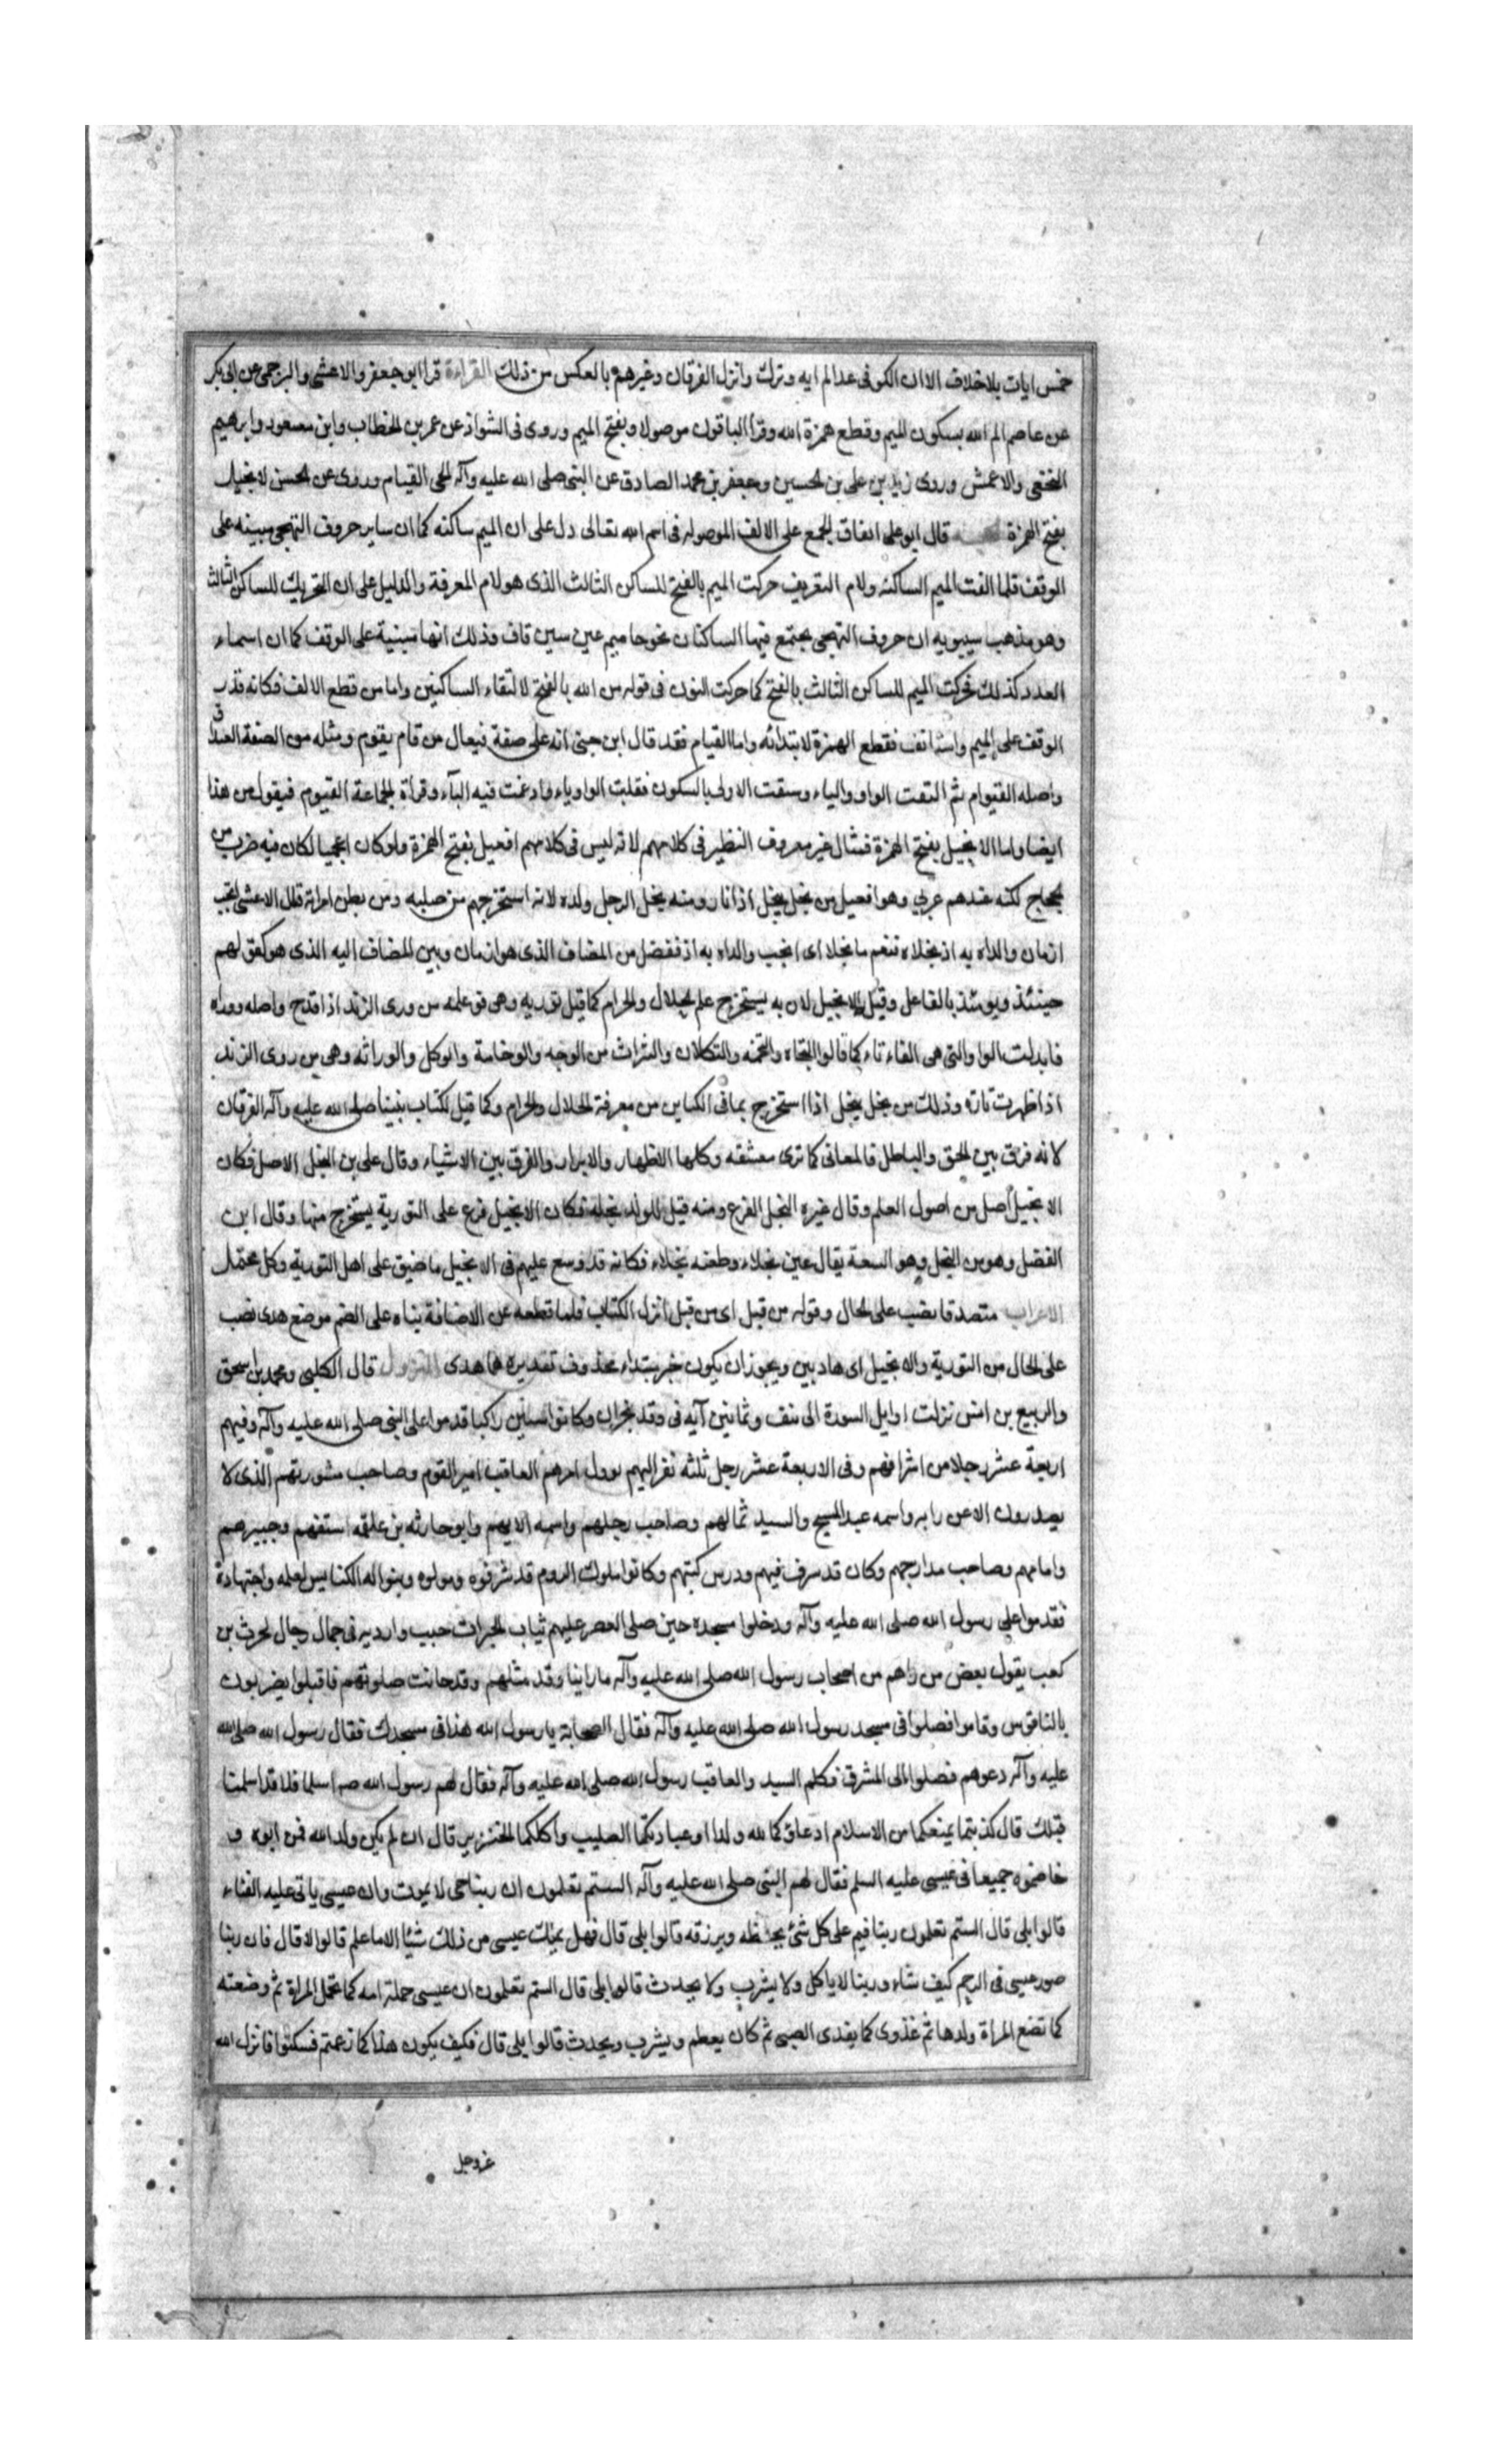 خمس ايات بلاخلاف الا ان الكوفى عد الم ايه وترك وانزل الفرقان وغيرهم بالعكس من ذلك القراءة قرا ابو جعفر والاعشى والبرجمى عن ابى بكر
عن عاصم الم الله بسكون الميم وقطع همزة الله وقرأ الباقون موصولا وبفتح الميم وروى فى الشواذ عن عمر بن الخطاب وابن مسعود وابرهيم
النخعى والاعمش وروى زيد بن على بن الحسين وجعفر بن محمد الصادق عن النبى صلى الله عليه وآله الحى القيام وروى عن الحسن الانجيل
بفتح الهمزة قال ابو على اتفاق الجمع على الالف الموصوله فى اسم الله تعالى دل على ان الميم ساكنه كما ان ساير حروف التهجى مبينه على
الوقف فلما القت الميم الساكنه ولام التعريف حركت الميم بالفتح للساكن الثالث الذى هو لام المعرفة والدليل على ان التحريك للساكن الثالث
وهو مذهب سيبويه ان حروف التهجى يجتمع فيها الساكنان نحو حا ميم عين سين قاف وذلك انها مبينية على الوقف كما ان اسماء
العدد كذلك فحركت الميم للساكن الثالث بالفتح كما حركت النون فى قوله من الله بالفتح لالتقاء الساكنين واما من قطع الالف فكانه قدر
الوقف على الميم واستانف فقطع الهمزة لابتدائه واما القيام فقد قال ابن جنى انه على صفة فيعال من قام يقوم ومثله من الصفة
واصله القيوام ثم التقت الواو والياء وسبقت الاولى بالسكون فقلبت الواو ياء وادغمت فيه الياء وقراة الجماعة القيوم فيقول من هذا
ايضا واما الانجيل بفتح الهمزة فمثال غير معروف النظير فى كلامهم لانه ليس فى كلامهم افعيل بفتح الهمزة ولو كان اعجميا لكان فيه ضرب من
لكنه عندهم عربي وهو افعيل من نجل ينجل اذا اثار ومنه نجل الرجل ولده لانه استخرجهم من صلبه ومن بطن امراته قال الاعشى انجب
ازمان والداه به اذ نجلاه فنعم ما نجلا اى انجب والداه به اذ ففصل من المضاف الذى هو ازمان وبين المضاف اليه الذى هو كقولهم
حينئذ ويومئذ بالفاعل وقيل الانجيل لان به يستخرج علم الحلال والحرام كما قيل توريه وهى فوعله من ورى الزند اذا قدح واصله ووراه
فابدلت الواو التى هى الفاء تاء كما قالوا التجاه والتخمه والتكلان والتراث من الوجه والوخامة والوكل والوراثه وهى من روى الزند
اذا ظهرت ناره وذلك من نجل ينجل اذا استخرج بما فى الكتابين من معرفة الحلال والحرام وكما قيل لكتاب نبينا صلى الله عليه وآله الفرقان
لانه فرق بين الحق والباطل فالمعانى كما ترى معشقه وكلها الاظهار والابراد والفرق بين الاشياء وقال على بن النجل الاصل فكان
الانجيل اصل من اصول العلم وقال غيره النجل الفرع ومنه قيل للولد نجله فكان الانجيل فرع على التورية يستخرج منها وقال ابن
الفضل وهو من النجل وهو السعة يقال عين نجلاء وطعنه نجلاء فكانه قد وسع عليهم فى الانجيل ما ضيق على اهل التورية وكل محتمل
الاعراب متصدقا نصب على الحال وقوله من قبل اى من قبل انزل الكتاب فلما قطعه عن الاضافة بناه على الضم موضع هدى نصب
على الحال من التورية والانجيل اى هاديين ويجوز ان يكون خبر مبتداء محذوف تقديره هما هدى النزول قال الكلبى ومحمد بن اسحق
والربيع بن انس نزلت اوايل السورة الى نيف وثمانين آيه فى وفد نجران وكانوا ستين راكبا قدموا على النبى صلى الله عليه وآله وفيهم
اربعة عشر رجلا من اشرافهم وفى الاربعة عشر رجل ثلثه نفر اليهم يوول امرهم العاقب امير القوم وصاحب مشورتهم الذى لا
يصدرون الا عن رايه واسمه عبد المسيح والسيد ثمالهم وصاحب رحلهم واسمه الايهم وابو حارثه بن علقمه اسقفهم وحبرهم
وامامهم وصاحب مدارجهم وكان قد شرف فيهم ودرس كتبهم وكانوا ملوك الروم قد شرفوه ومولوه وبنوا له الكنايس لعلمه واجتهاده
فقدموا على رسول الله صلى الله عليه وآله ودخلوا مسجده حين صلى العصر عليهم ثياب الحبرات جبب واردية فى جمال رجال الحرث بن
كعب يقول بعض من راهم من اصحاب رسول الله صلى الله عليه وآله ما راينا وفد مثلهم وقد حانت صلوتهم فاقبلوا يضربون
بالناقوس وقاموا فصلوا فى مسجد رسول الله صلى الله عليه وآله فقال الصحابة يا رسول الله هذا فى مسجدك فقال رسول الله صلى الله
عليه وآله دعوهم فصلوا الى المشرق فكلم السيد والعاقب رسول الله صلى الله عليه وآله فقال لهم رسول الله صـ اسلما قالا قد اسلمنا
قبلك قال كذبتما يمنعكما من الاسلام ادعاؤكما لله ولدا او عبادتكما الصليب واكلكما الخنزير قال ان لم يكن ولد الله فمن ابوه و
خاصموه جميعا فى عيسى عليه السلم فقال لهم النبى صلى الله عليه وآله الستم تعلمون ان ربنا حى لا يموت وان عيسى ياتى عليه الفناء
قالوا بلى قال الستم تعلمون ربنا قيم على كل شئ يحفظه ويرزقه قالوا بلى قال فهل يملك عيسى من ذلك شيئا الا ما علم قالوا لا قال فان ربنا
صور عيسى فى الرحم كيف شاء وربنا لا ياكل ولا يشرب ولا يحدث قالوا بلى قال الستم تعلمون ان عيسى حملته امه كما تحمل المراة ثم وضعته
كما تضع المراة ولدها ثم غذوى كما يغذى الصبى ثم كان يطعم ويشرب ويحدث قالوا بلى قال فكيف يكون هذا كما زعمتم فسكتوا فانزل الله
عزوجل